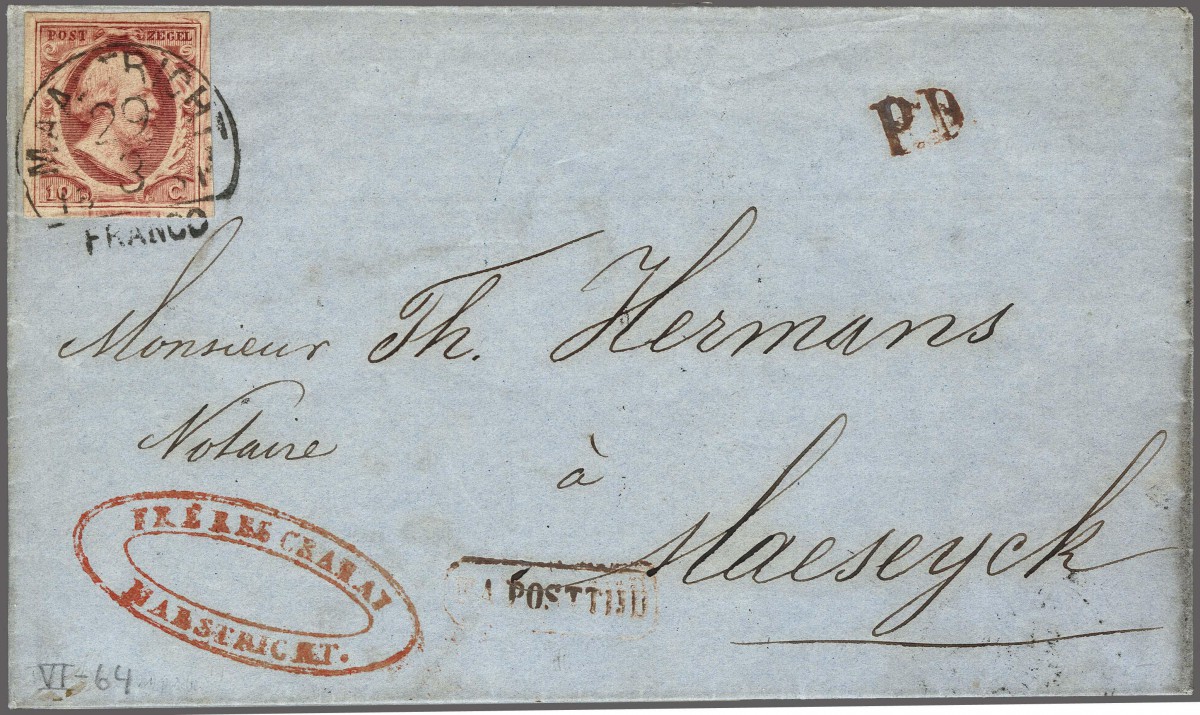 POST ZEGEL
MAA TRICHT
29
3
10 C.
FRANCO
P.D.
Monsieur Th. Hermans
Notaire
à
Maeseyck
FRÉRES
MAESTRICHT.
NA POSTTIJD
VI-64